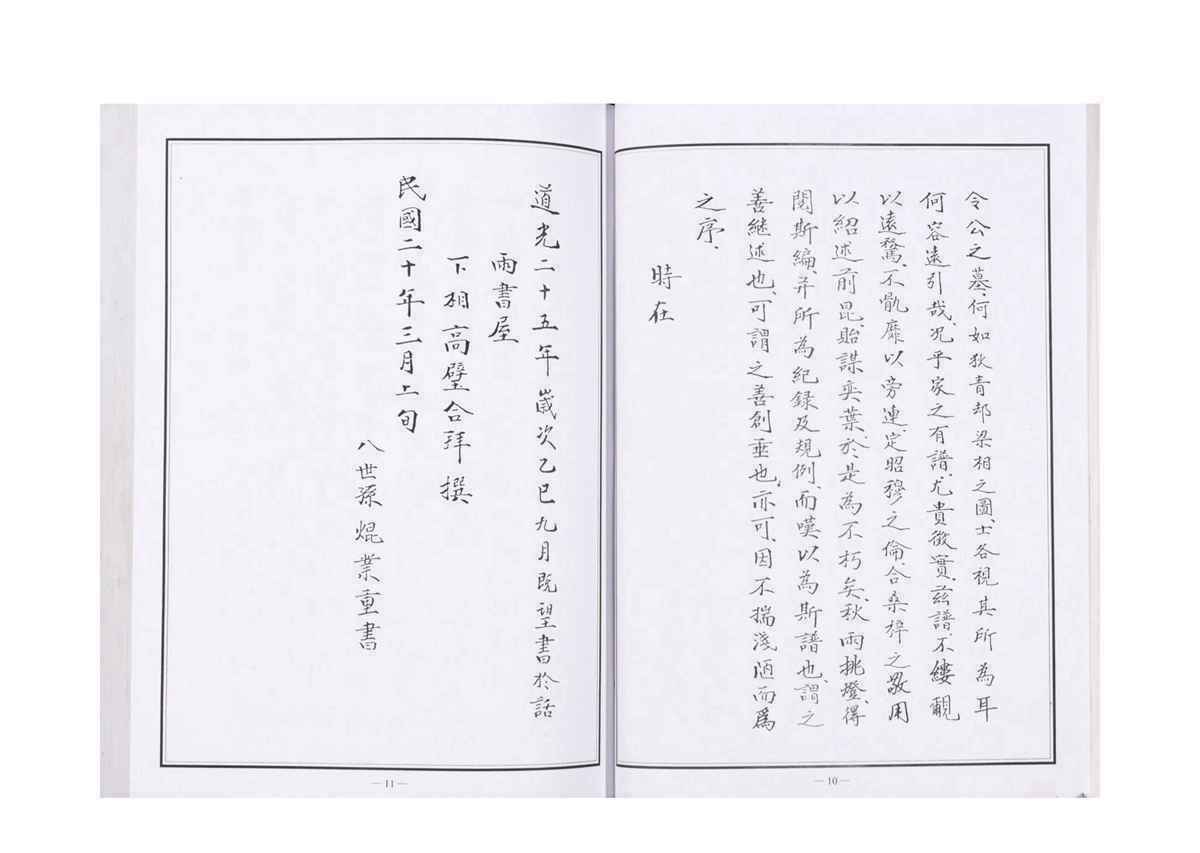 令公之墓、何如狄青却梁相之圖、士各視其所為耳
何容遠引哉、況乎家之有譜、尤貴徵實、茲譜不縷覼
以遠騖、不骫靡以旁連、定昭穆之倫、合桑梓之敬、用
以紹述前昆、貽謀奕葉、於是為不朽矣、秋雨挑燈、得
閱斯編、并所為紀錄及規例、而嘆以為斯譜也、謂之
善继述也、可謂之善創垂也、亦可、因不揣淺陋而爲
之序、
時在
10
道光二十五年歲次乙巳九月既望書於話
雨書屋
下相高璧合拜撰
民國二十年三月上旬
八世孫焜業重書
11